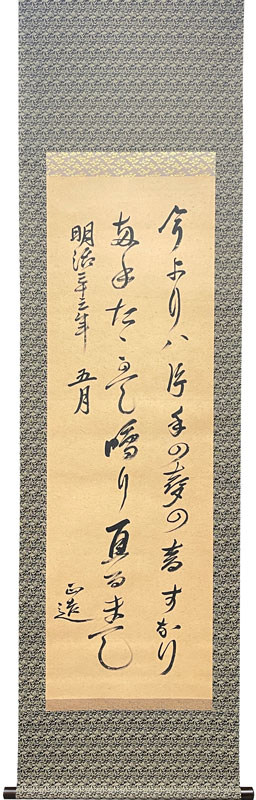 今よりハ片手の聲の音すなり
両手たゝきて鳴り直るまて
明治三十三年 五月
正造